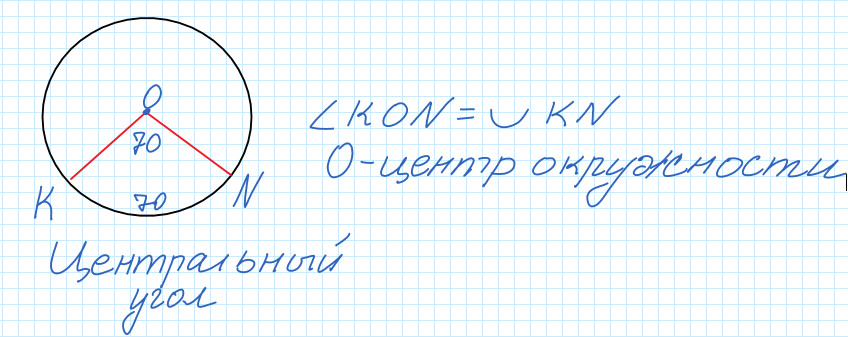 O
70
∠KON = ◡ KN
O-центр окружности
K
70
N
Центральный
угол